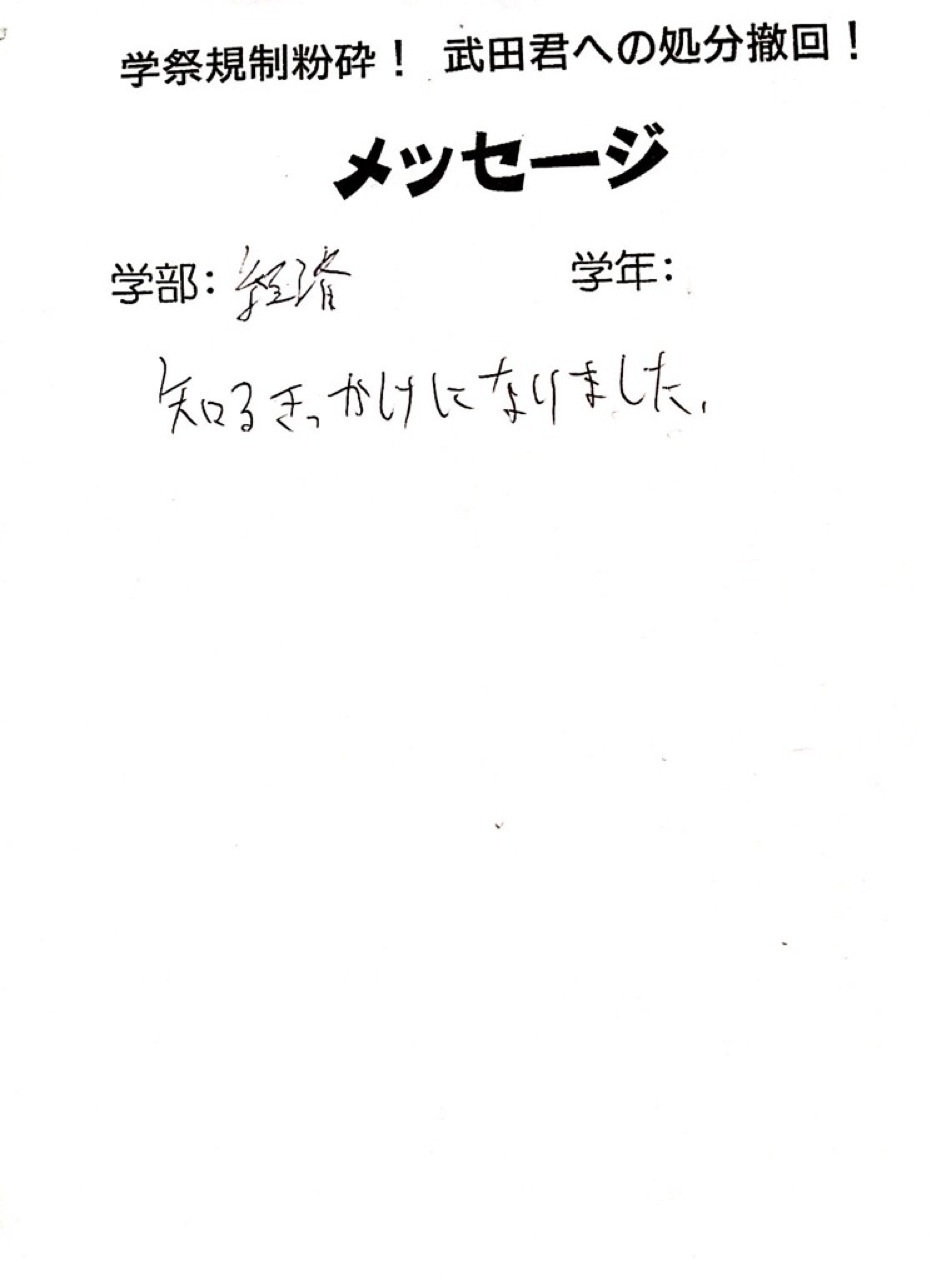 学祭規制粉砕！ 武田君への処分撤回！
メッセージ
学部：経済 学年：
知るきっかけになりました.